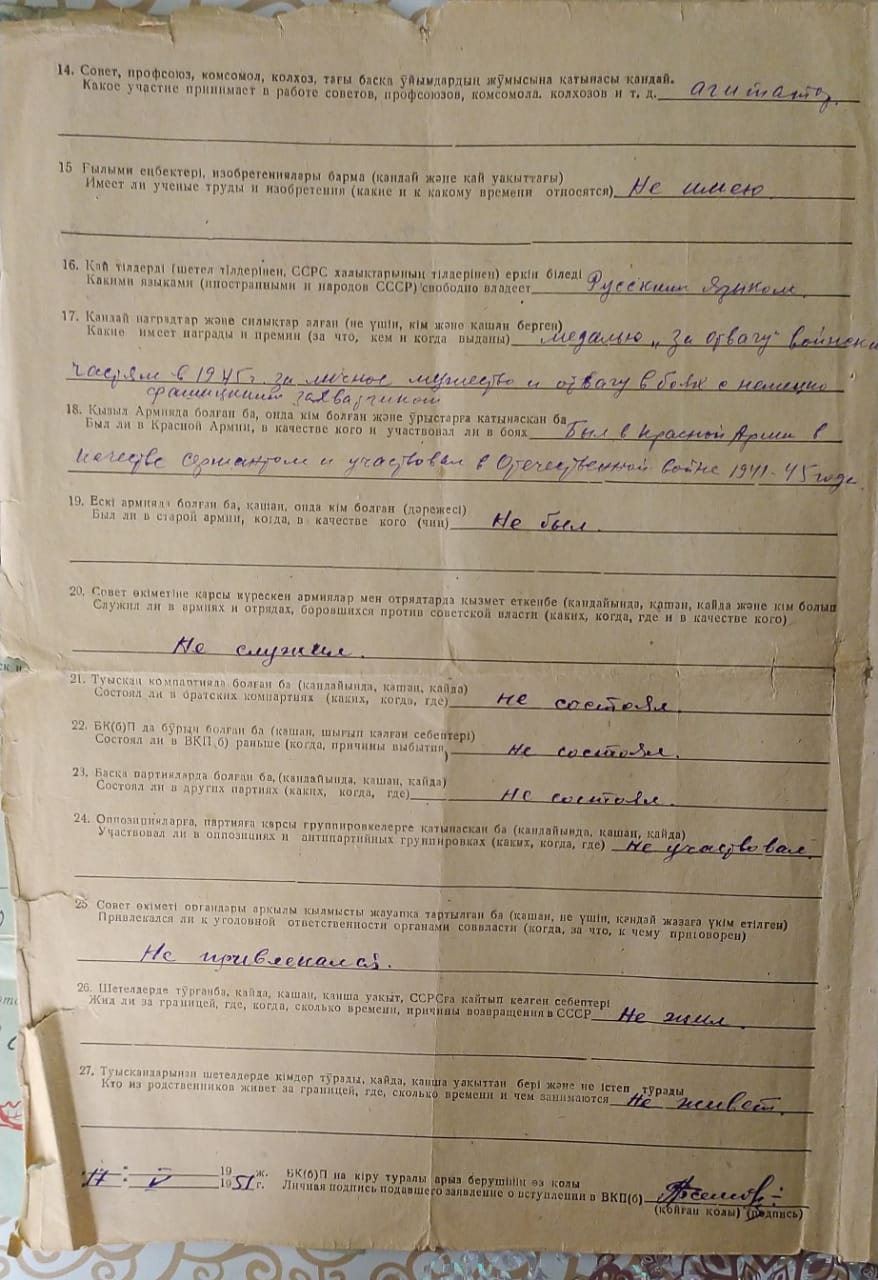 14. Совет, профсоюз, комсомол, колхоз, тағы басқа ўйымдардың жўмысына қатынасы қандай.
Какое участие принимает в работе советов, профсоюзов, комсомола. колхозов и т. д. агитатор
15 Ғылыми еңбектері, изобретениялары барма (қандай және қай уақыттағы)
Имеет ли ученые труды и изобретения (какие и к какому времени относятся) Не имею
16. Қай тілдерді (шетел тілдерінен, ССРС халықтарының тілдерінен) еркін біледі
Какими языками (иностранными и народов СССР) свободно владеет Русским языком
17. Қандай наградтар және силықтар алған (не үшін, кім және қашан берген)
Какие имеет награды и премии (за что, кем и когда выданы) медалью „За отвагу"
частям в 1945 г. за личное мужество и отвагу в боях с немецко
18. Қызыл Армияда болған ба, онда кім болған және ўрыстарға қатынасқан ба
Был ли в Красной Армии, в качестве кого и участвовал ли в боях Был в Красной Армии в
качестве сержантом и участвовал в Отечественной войне 1941-45 годе.
19. Ескі армияда болған ба, қашан, онда кім болған (дәрежесі)
Был ли в старой армии, когда, в качестве кого (чин) Не был.
20. Совет өкіметіне қарсы күрескен армиялар мен отрядтарда қызмет еткенбе (қандайында, қашан, қайда және кім болып
Служил ли в армиях и отрядах, боровшихся против советской власти (каких, когда, где и в качестве кого)
Не служил.
21. Туысқан компартияда болған ба (қандайында, қашан, қайда)
Состоял ли в братских компартиях (каких, когда, где) не состоял.
22. БК(б)П да бўрын болған ба (қашан, шығып қалған себептері)
Состоял ли в ВКП(б) раньше (когда, причины выбытия) не состоял.
23. Басқа партияларда болған ба, (қандайында, қашан, қайда)
Состоял ли в других партиях (каких, когда, где) не состоял.
24. Оппозицияларға, партияға қарсы группировкелерге қатынасқан ба (қандайында, қашан, қайда)
Участвовал ли в оппозициях и антипартийных группировках (каких, когда, где) не участвовал.
25 Совет өкіметі органдары арқылы қылмысты жауапқа тартылған ба (қашан, не үшін, қандай жазаға үкім етілген)
Привлекался ли к уголовной ответственности органами соввласти (когда, за что, к чему приговорен)
Не привлекался.
26. Шетелдерде тўрғанба, қайда, қашан, қанша уақыт, ССРСға қайтып келген себептері
Жил ли за границей, где, когда, сколько времени, причины возвращения в СССР Не жил.
27. Туысқандарынан шетелдерде кімдер тўрады, қайда, қанша уақыттан бері және не істеп тўрады
Кто из родственников живет за границей, где, сколько времени и чем занимаются Не живет.
19 ж. БК(б)П на кіру туралы арыз берушінің өз қолы
17 V 1951 г. Личная подпись подавшего заявление о вступлении в ВКП(б)
(қойған қолы) (подпись)